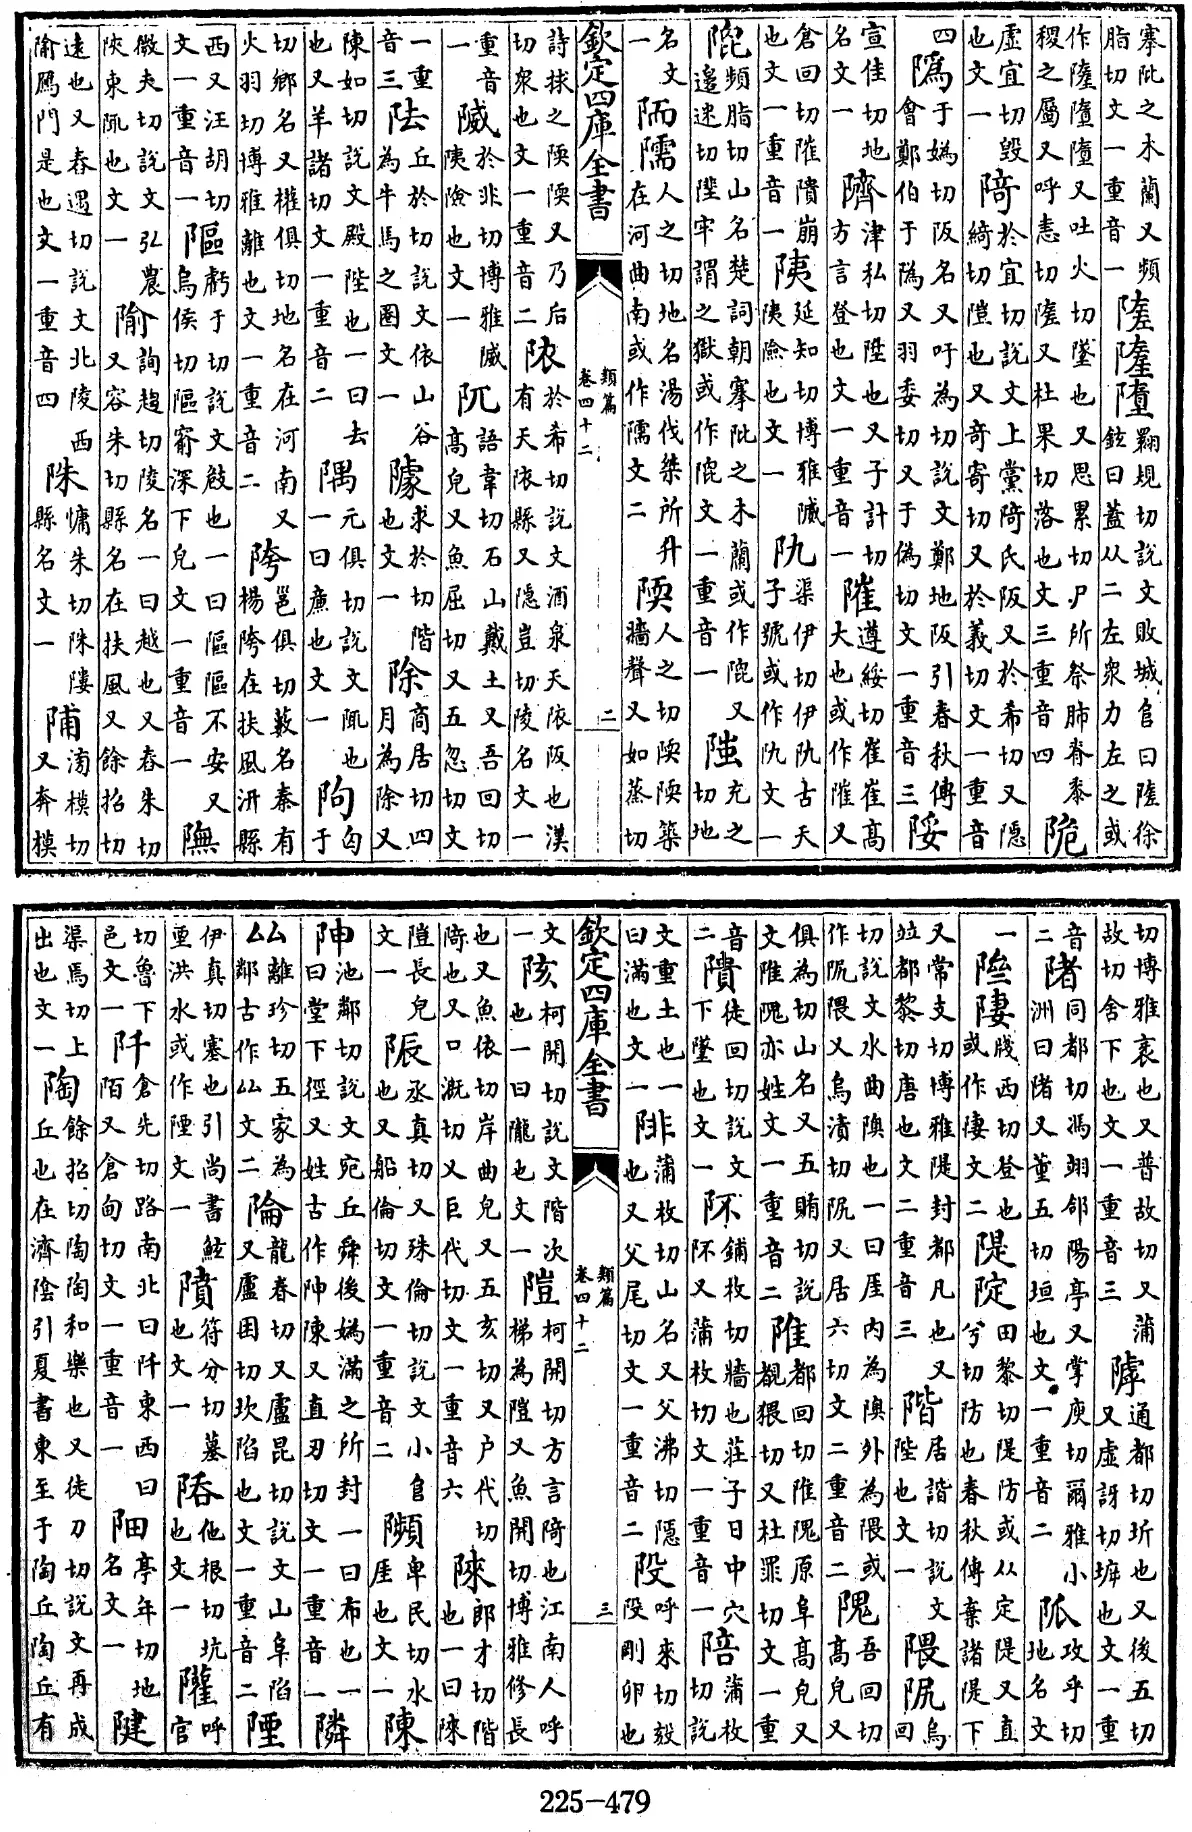 搴阰之木蘭又頻脂切文一重音一 隓隳翾規切說文敗城𨸏曰隓徐鉉曰蓋从二左衆力左之或
作隓又吐火切墜也又思累切尸所祭肺脊黍稷之屬又呼恚切隓又杜果切落也文三重音四 陒
虛宜切毀也文一 陭於宜切說文上黨陭氏阪又於希切又隱綺切隑也又奇寄切又於義切文一重音
四 于嬀切阪名又吁為切說文鄭地阪引春秋傳會鄭伯于又羽委切又于偽切文一重音三
宣佳切地名文一 隮津私切陞也又子計切方言登也文一重音一 遵綏切崔崔高大也或作又
倉回切隤崩也文一重音一 延知切博雅隇險也文一 渠伊切伊古天子號或作文一
頻脂切山名楚詞朝搴阰之木蘭或作又邊迷切陛牢謂之獄或作文一重音一 充之切地
名文一 陑隭人之切地名湯伐桀所升在河曲南或作隭文二 陾人之切陾陾築牆聲又如蒸切
欽定四庫全書 類篇 卷四十二 二
詩捄之陾陾又乃后切衆也文一重音二 於希切說文酒泉天依阪也漢有天依縣又隱豈切陵名文一
重音一 隇於非切博雅隇險也文一 阢語韋切石山戴土又吾回切高皃又魚屈切又五忽切文
一重音三 阹丘於切說文依山谷為牛馬之圈文一 求於切階也文一 除商居切四月為除又
陳如切說文殿陛也一曰去也又羊諸切文一重音二 隅元俱切說文陬也一曰廉也文一 匈于
切鄉名又權俱切地名在河南又火羽切博雅離也文一重音二 陓邕俱切藪名秦有楊陓在扶風汧縣
西又汪胡切文一重音一 虧于切說文敧也一曰不安又烏侯切窬深下皃文一重音一
微夫切說文弘農陝東陬也文一 隃詢趨切陵名一曰越也又舂朱切又容朱切縣名在扶風又餘招切
遠也又舂遇切說文北陵西隃鴈門是也文一重音四 陎慵朱切縣名文一 陠滂模切又奔模
切博雅衺也又普故切又蒲故切舍下也文一重音三 通都切坼也又後五切又虛訝切也文一重
音二 陼同都切馮翊郃陽亭又掌庾切爾雅小洲曰陼又董五切垣也文一重音二 攻乎切地名文
一 牋西切登也或作文二 隄田黎切隄防或从定隄又直兮切防也春秋傳棄諸隄下
又常支切博雅隄封都凡也又竝都黎切唐也文二重音三 階居諧切說文陛也文一 隈烏回
切說文水曲隩也一曰厓內為隩外為隈或作隈又烏潰切又居六切文二重音二 隗吾回切高皃又
俱為切山名又五賄切說文陮隗亦姓文一重音二 陮都回切陮隗原阜高皃又覩猥切又杜罪切文一重
音二 隤徒回切說文下墜也文一 阫鋪枚切牆也莊子日中穴阫又蒲枚切文一重音一 陪蒲枚切說
文重土也一曰滿也文一 陫蒲枚切山名又父沸切隱也又父尾切文一重音二 呼來切毅剛卯也
欽定四庫全書 類篇 卷四十二 三
文一 陔柯開切說文階次也一曰隴也文一 隑柯開切方言陭也江南人呼梯為隑又魚開切博雅修長
也又魚依切岸曲皃又五亥切又戶代切陭也又口溉切又巨代切文一重音六 䧒郎才切階也一曰䧒
隑長皃文一 陙丞真切又殊倫切說文小𨸏也又船倫切文一重音二 卑民切水厓也文一 陳
池鄰切說文宛丘舜後媯滿之所封一曰布也一曰堂下徑又姓古作陳又直刃切文一重音一 隣
厸離珍切五家為鄰古作厸文二 陯龍春切又盧昆切說文山阜陷又盧困切坎陷也文一重音二 陻
伊真切塞也引尚書鯀垔洪水或作陻文一 隫符分切墓也文一 他根切坑也文一 呼官
切魯下邑文一 阡倉先切路南北曰阡東西曰陌又倉甸切文一重音一 亭年切地名文一
渠焉切上出也文一 陶餘招切陶陶和樂也又徒刀切說文再成丘也在濟陰引夏書東至于陶丘陶丘有
225-479